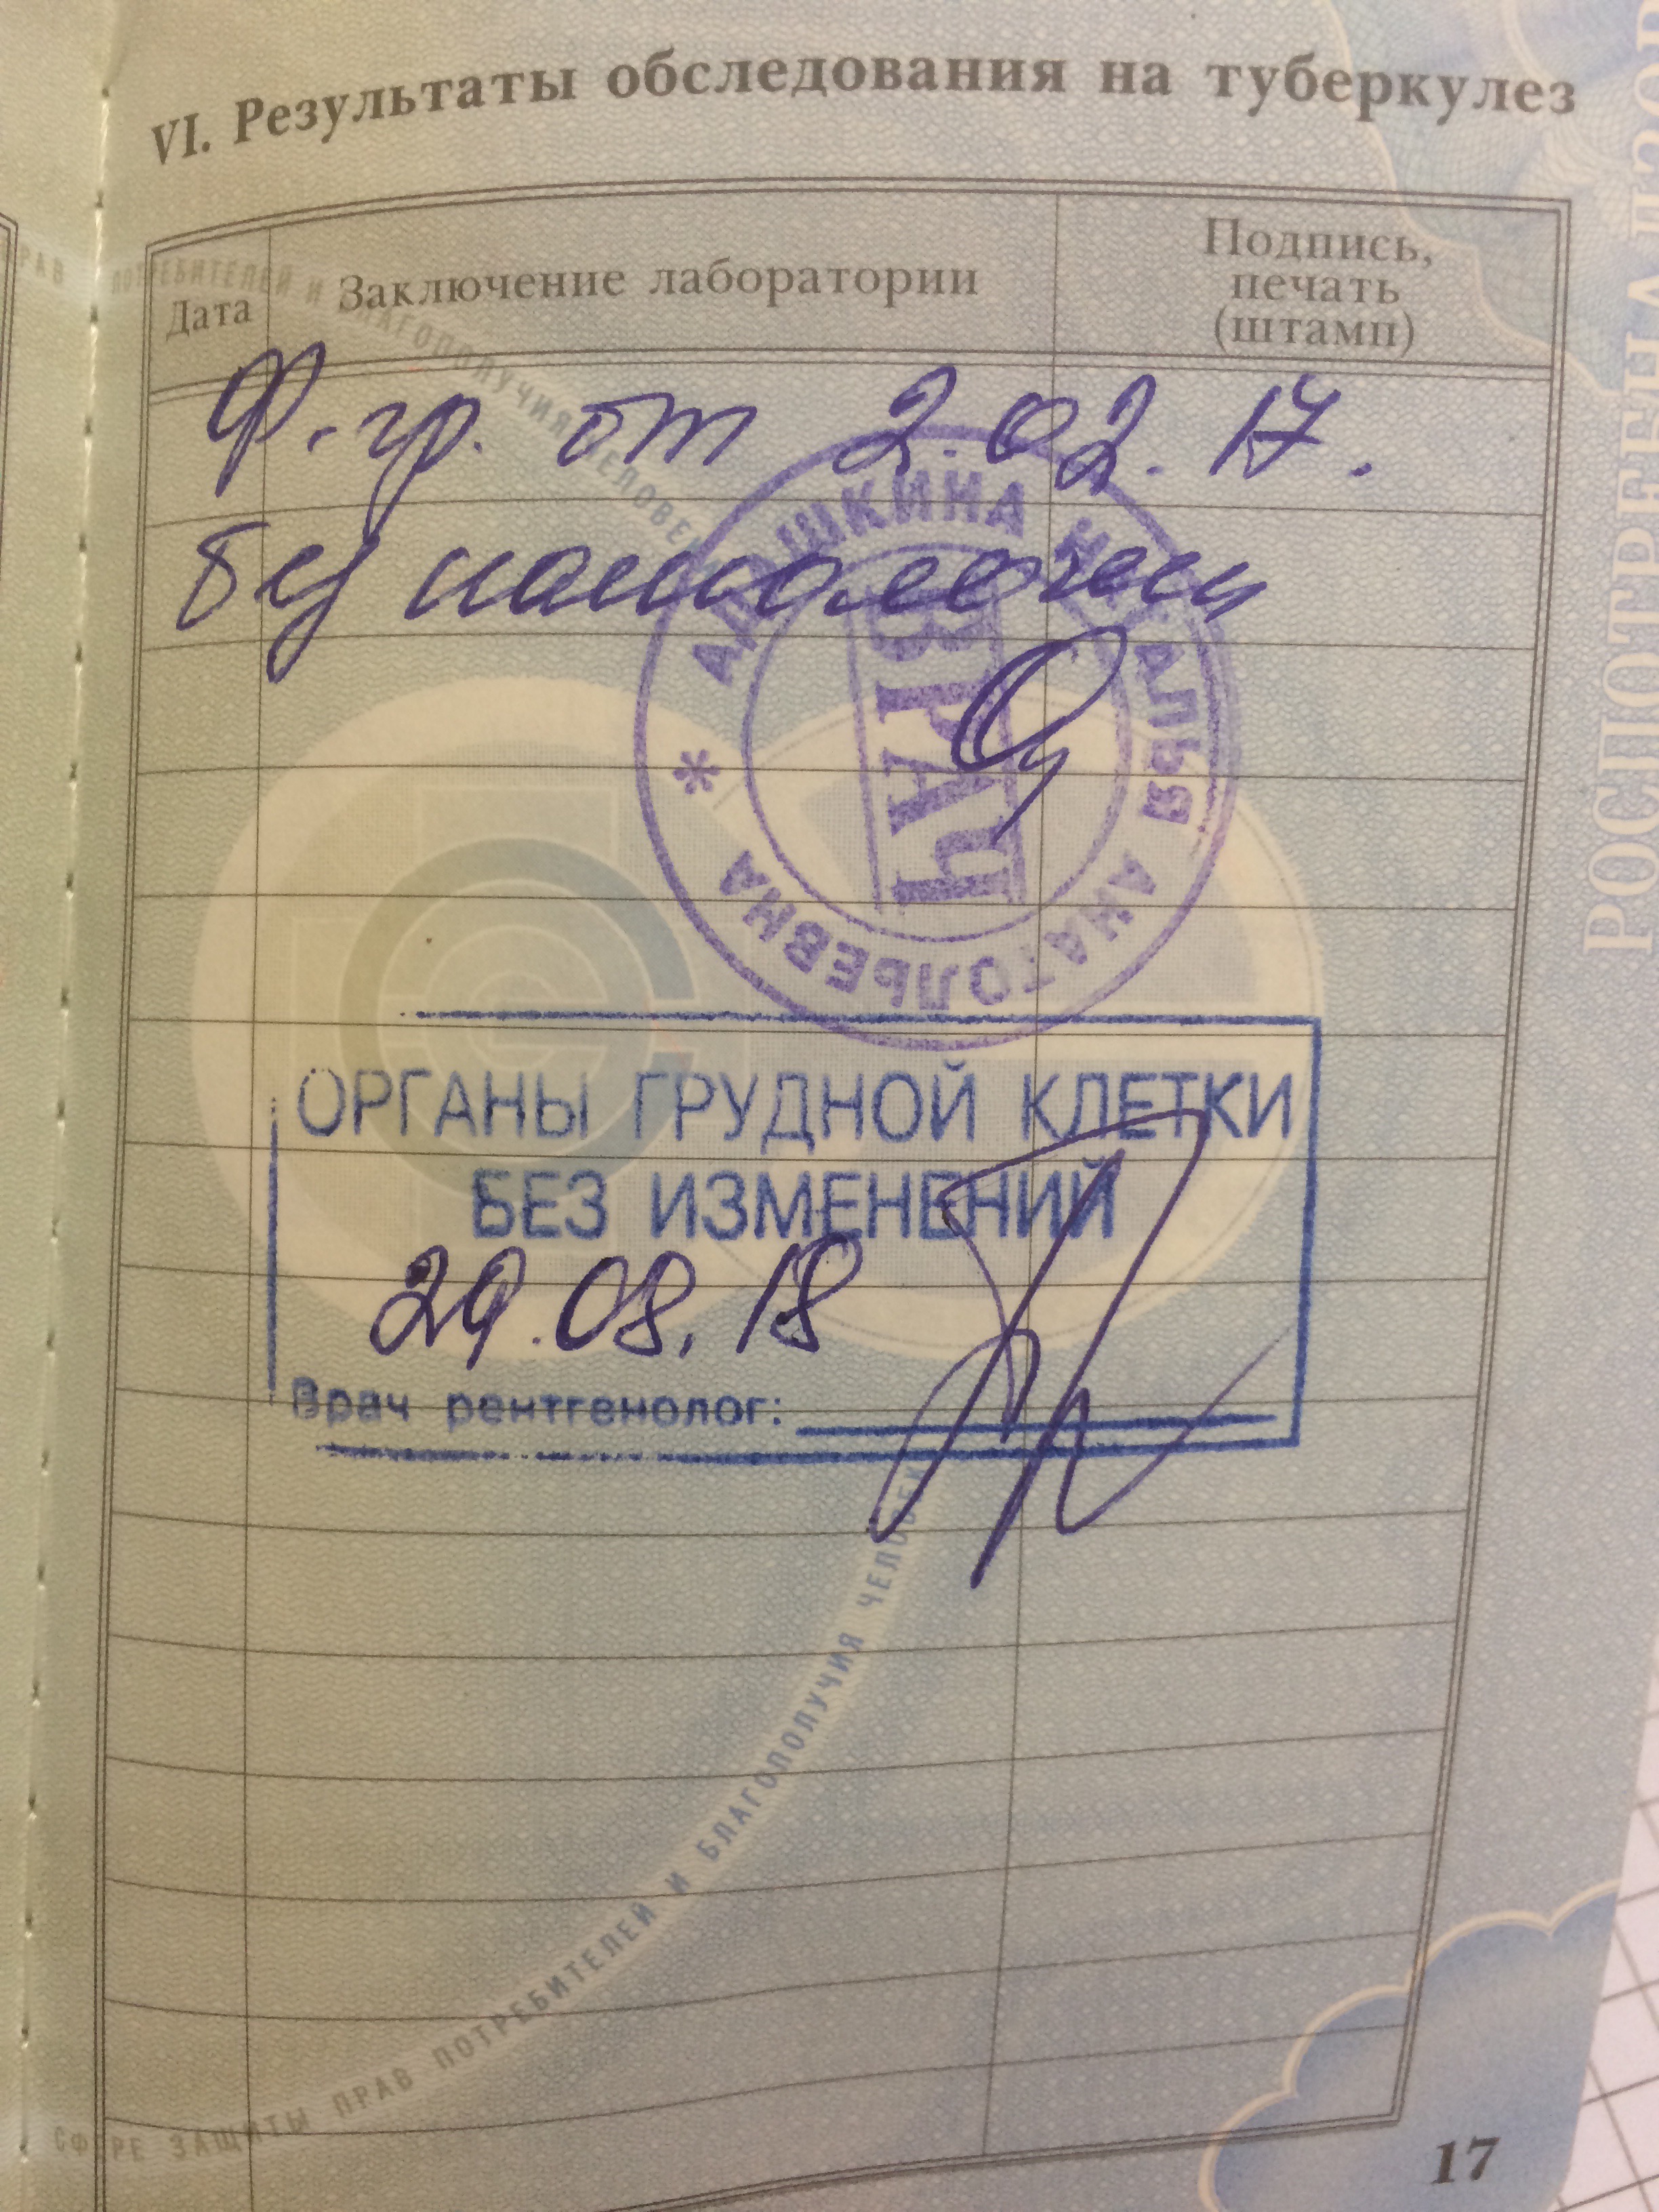 VI. Результаты обследования на туберкулез
Дата
Заключение лаборатории
Подпись,
печать
(штамп)
Ф-гр. от 2.02.17.
без патологии
НАТАЛЬЯ АНАТОЛЬЕВНА
ВРАЧ
ОРГАНЫ ГРУДНОЙ КЛЕТКИ
БЕЗ ИЗМЕНЕНИЙ
29.08.18
Врач рентгенолог:
ПРАВ ПОТРЕБИТЕЛЕЙ И БЛАГОПОЛУЧИЯ ЧЕЛОВЕКА
СФЕРЕ ЗАЩИТЫ ПРАВ ПОТРЕБИТЕЛЕЙ И БЛАГОПОЛУЧИЯ ЧЕЛОВЕКА
РОСПОТРЕБНАДЗОР
17